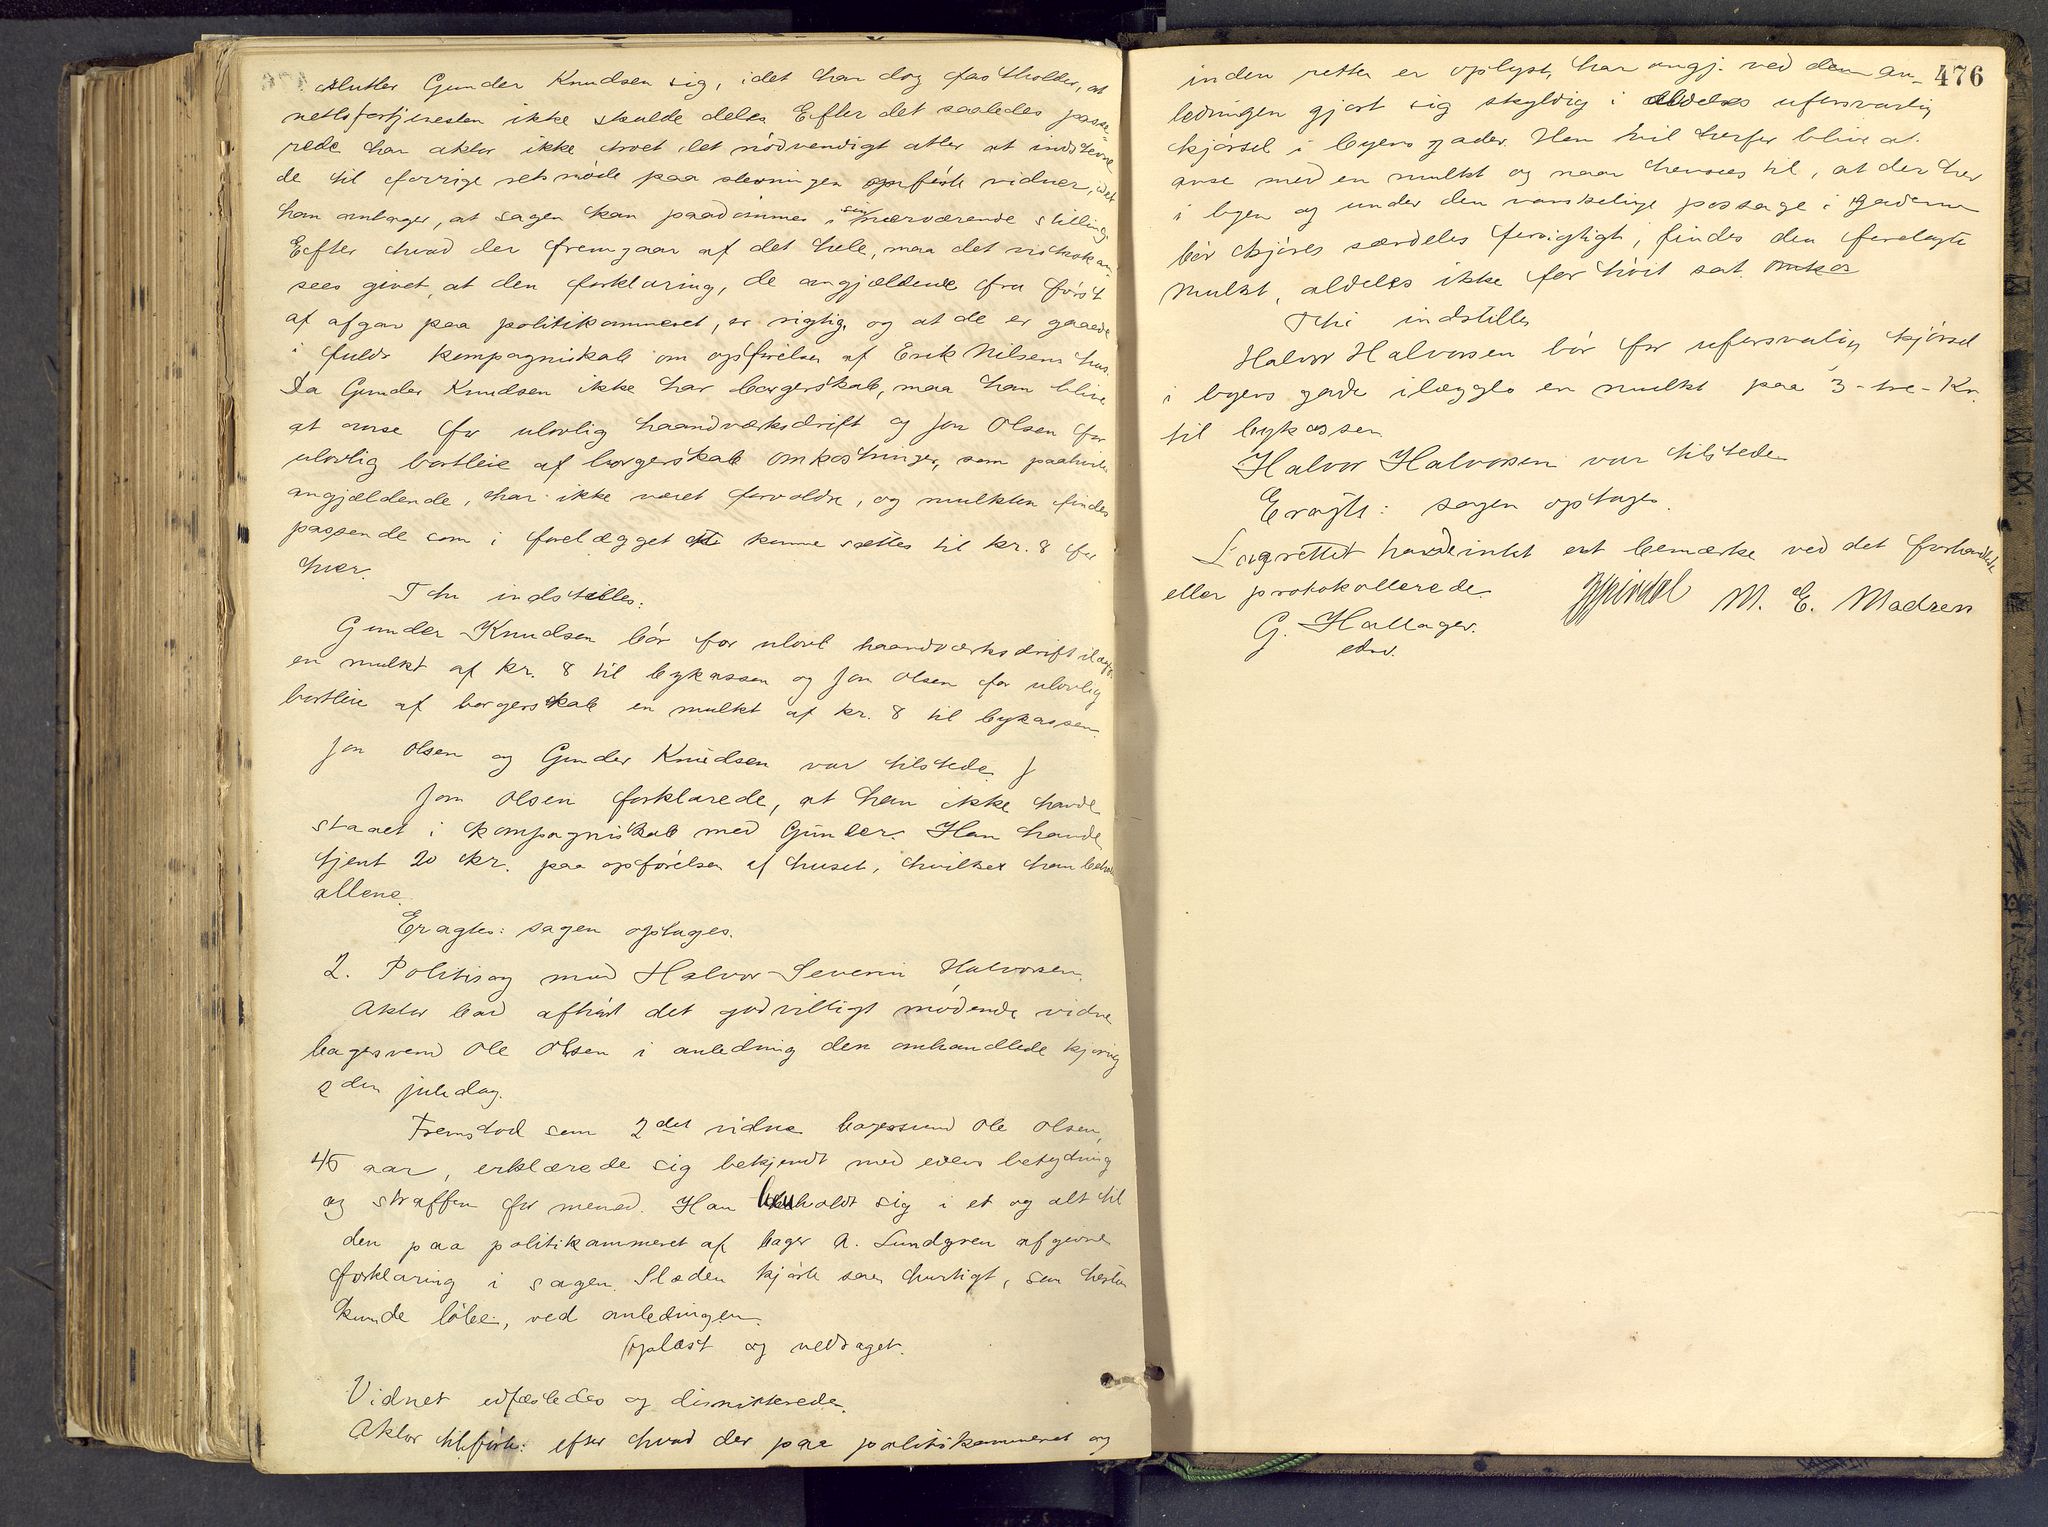 slutter Gunder Knudsen sig, idet han dog fastholder, at
nettofortjenesten ikke skulde deles. Efter det saaledes passe-
rede har aktor ikke troet det nødvendigt atter at indstevne
de til forrige retsmøde paa stevningen opførte vidner, idet
han antager, at sagen kan paadømmes i sin nærværende stilling.
Efter hvad der fremgaar af det hele, maa det vistnok an-
sees givet, at den forklaring, de angjældende fra først
af afgav paa politikammeret, er rigtig, og at de er gaaede
i fuldt kompagniskab om opførelsen af Erik Nilsens hus.
Da Gunder Knudsen ikke har borgerskab, maa han blive
at anse for ulovlig haandværksdrift og Jon Olsen for
ulovlig bortleie af borgerskab. Omkostninger, som paahviler
angjældende, har ikke været forvoldte, og mulkten findes
passende som i forelægget at kunne sættes til kr. 8 for
hver.
Thi indstilles:
Gunder Knudsen bør for ulovl. haandværksdrift ilægges
en mulkt af kr. 8 til bykassen og Jon Olsen for ulovlig
bortleie af borgerskab en mulkt af kr. 8 til bykassen.
Jon Olsen og Gunder Knudsen var tilstede.
Jon Olsen forklarede, at han ikke havde
staaet i kompagniskab med Gunder. Han havde
tjent 20 kr. paa opførelsen af huset, hvilket han beholdt
allene.
Eragtes: sagen optages.
2. Politisag mod Halvor Severin Halvorsen.
Aktor bad afhørt det godvilligt mødende vidne
bagersvend Ole Olsen i anledning den omhandlede kjøring
2den juledag.
Fremstod som 2det vidne bagersvend Ole Olsen,
45 aar, erklærede sig bekjendt med edens betydning
og straffen for mened. Han henholdt sig i et og alt til
den paa politikammeret af bager A. Lundgren afgivne
forklaring i sagen. Slæden kjørte saa hurtigt, som hesten
kunde løbe, ved anledningen.
Oplæst og vedtaget.
Vidnet edfæstedes og dimitteredes.
Aktor tilførte: efter hvad der paa politikammeret og
476
inden retten er oplyst, har angj. ved den an-
ledningen gjort sig skyldig i aldeles uforsvarlig
kjørsel i byens gader. Han vil derfor blive at
anse med en mulkt og naar hensees til, at der her
i byen og under den vanskelige passage i gaderne
bør kjøres særdeles forsigtigt, findes den forelagte
mulkt, aldeles ikke for høit sat.
Thi indstilles
Halvor Halvorsen bør for uforsvarlig kjørsel
i byens gade ilægges en mulkt paa 3 - tre - Kr.
til bykassen
Halvor Halvorsen var tilstede
Eragts: sagen optages.
Lagrettet havde intet at bemærke ved det forhandlede
eller protokollerede.
M. E. Madsen
G. Hallager.
edsv.